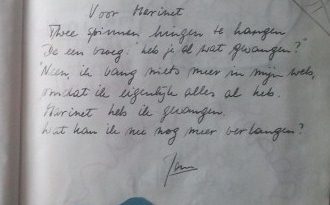 Voor Marinet
Twee spinnen hingen te hangen
De een vroeg: "heb je al wat gevangen?"
"Neen, ik vang niets meer in mijn web,
omdat ik eigenlijk alles al heb.
Marinet heb ik gevangen.
Wat kan ik nu nog meer verlangen?